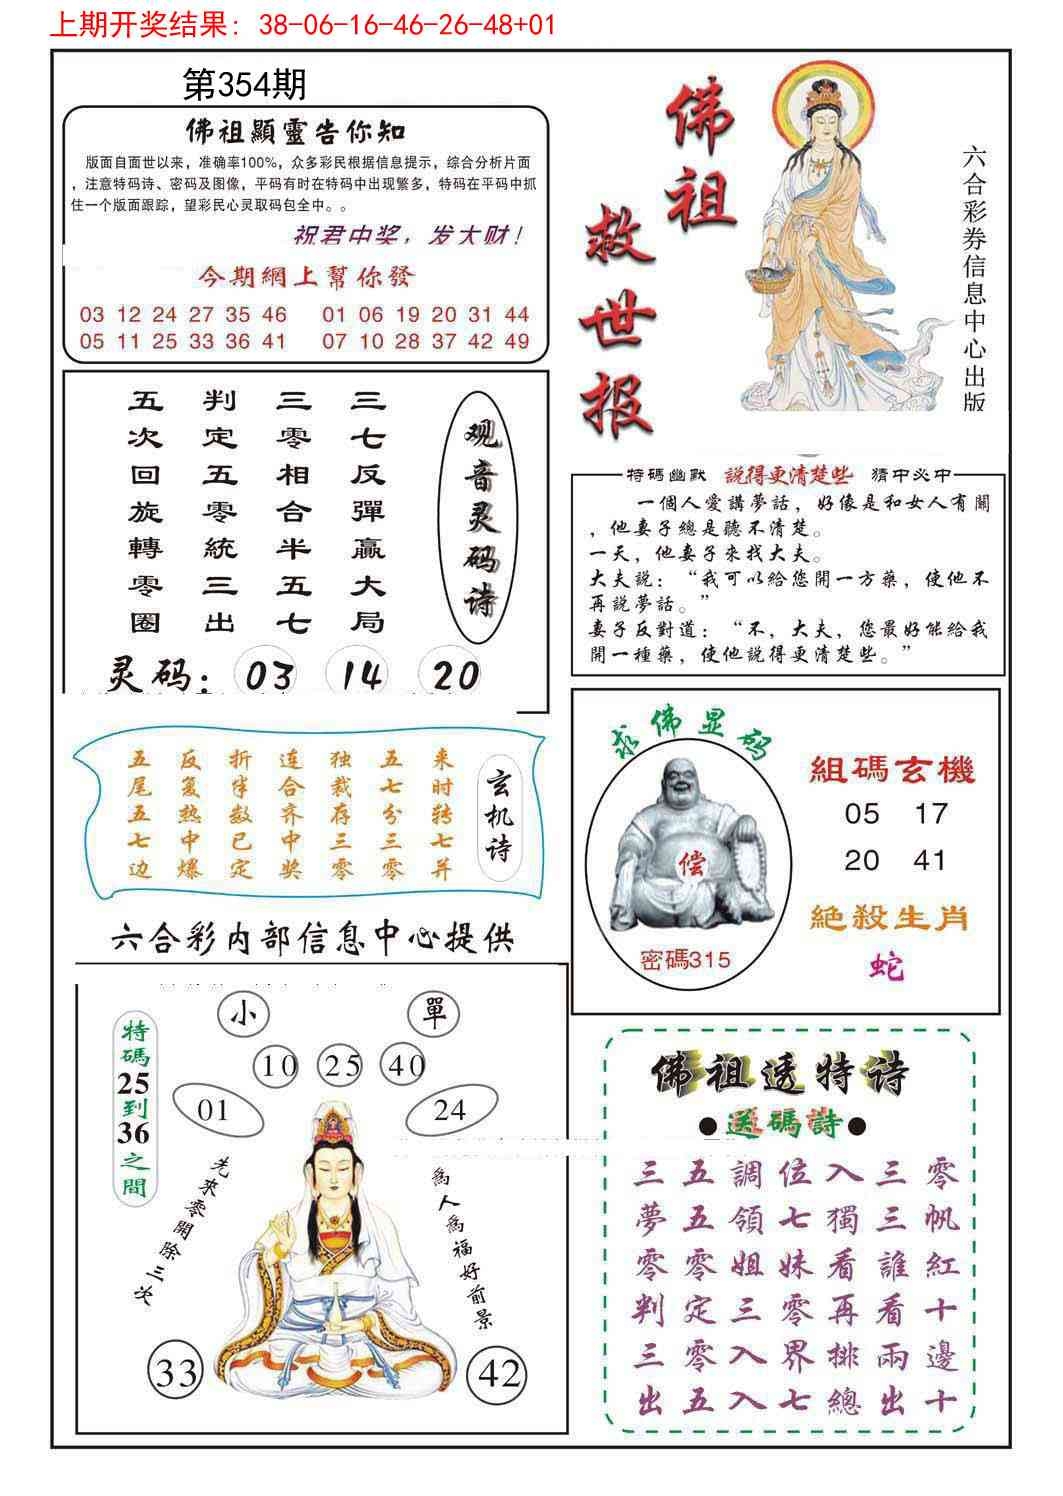 上期开奖结果: 38-06-16-46-26-48+01
第354期
佛祖顯靈告你知
版面自面世以来，准确率100%，众多彩民根据信息提示，综合分析片面
，注意特码诗、密码及图像，平码有时在特码中出现繁多，特码在平码中抓
住一个版面跟踪，望彩民心灵取码包全中。。
祝君中奖，发大财！
今期網上幫你發
03 12 24 27 35 46 01 06 19 20 31 44
05 11 25 33 36 41 07 10 28 37 42 49
佛祖救世报
六合彩券信息中心出版
观音灵码诗
三七反彈贏大局
三零相合半五七
判定五零統三出
五次回旋轉零圈
灵码: 03 14 20
特碼幽默 說得更清楚些 猜中必中
一個人愛講夢話，好像是和女人有關
，他妻子總是聽不清楚。
一天，他妻子來找大夫。
大夫說：“我可以給您開一方藥，使他不
再說夢話。”
妻子反對道：“不，大夫，您最好能給我
開一種藥，使他說得更清楚些。”
玄机诗
来时转七并
五七分三零
独裁存三零
连合齐中奖
折半数已定
反复热中爆
五尾五七边
六合彩内部信息中心提供
求佛显码
偿
密碼315
組碼玄機
05 17
20 41
絕殺生肖
蛇
特碼25到36之間
小 單
10 25 40
01 24
先來零開除三次
為人為福好前景
33 42
佛祖透特诗
●送碼詩●
三五調位入三零
夢五領七獨三帆
零零姐妹看誰紅
判定三零再看十
三零入界排兩邊
出五入七總出十